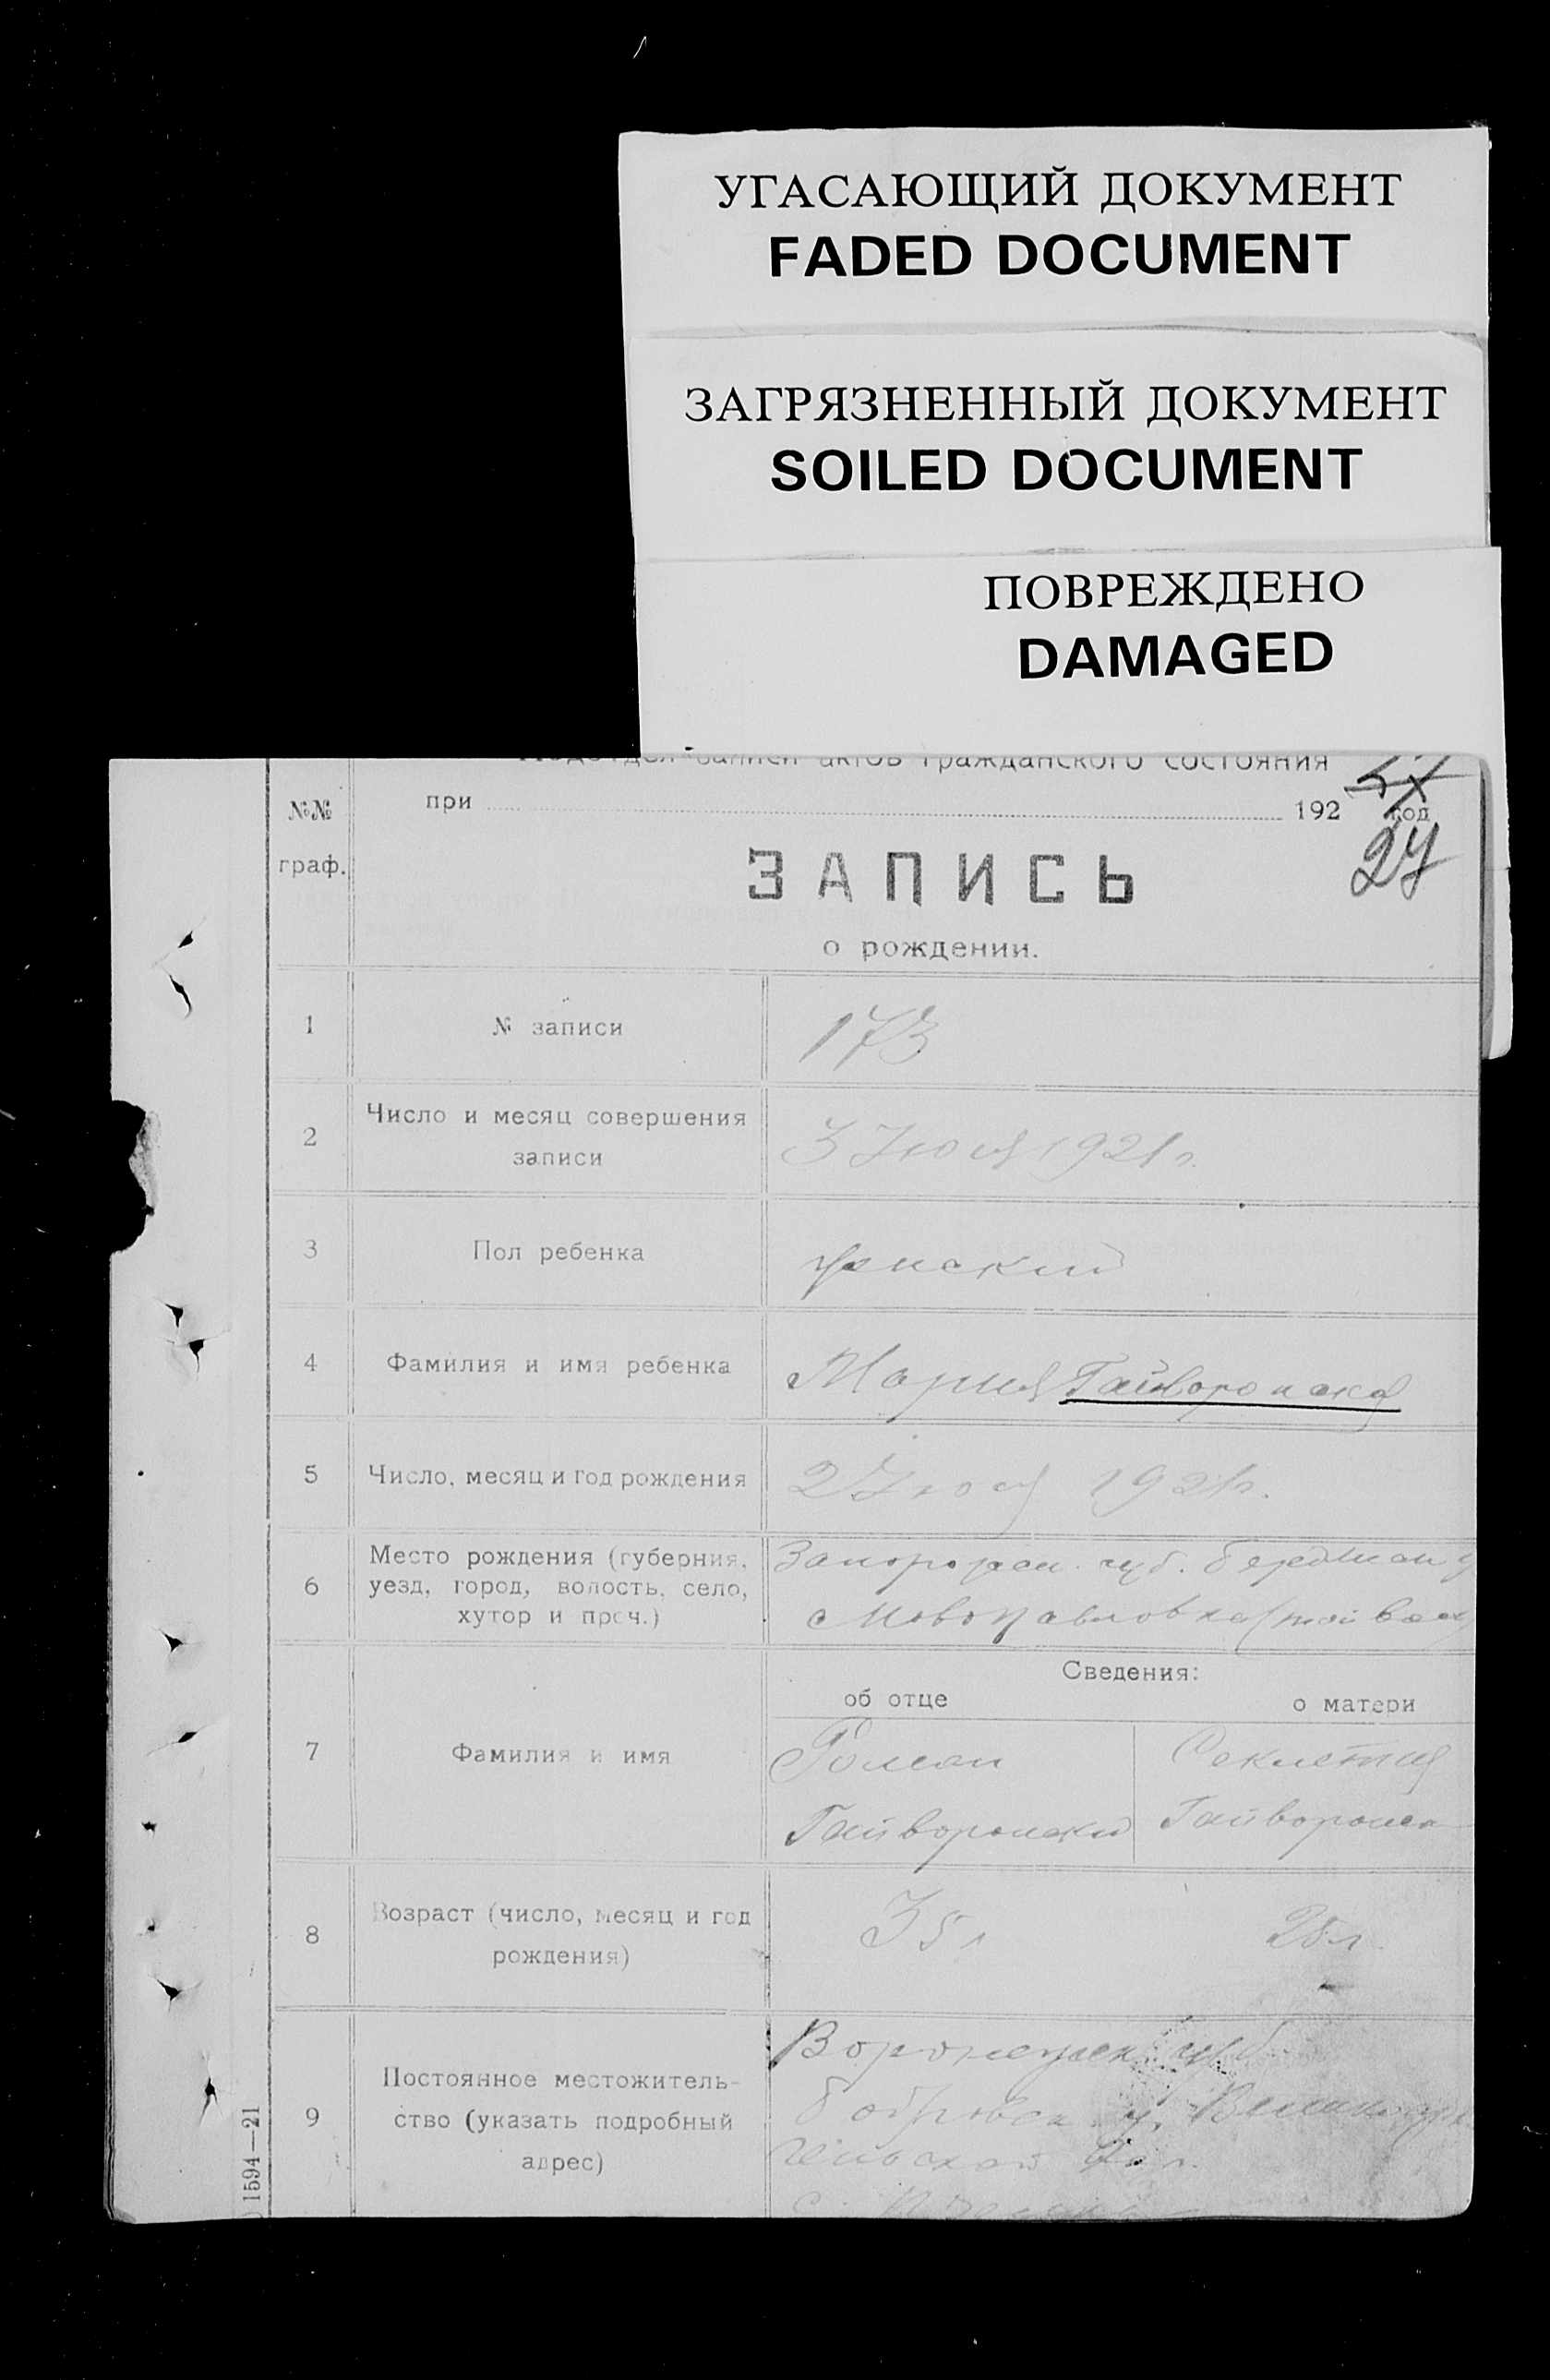 УГАСАЮЩИЙ ДОКУМЕНТ
FADED DOCUMENT
ЗАГРЯЗНЕННЫЙ ДОКУМЕНТ
SOILED DOCUMENT
ПОВРЕЖДЕНО
DAMAGED
записи актов гражданского состояния
№№ граф.
при 192 год
27
ЗАПИСЬ
о рождении.
1 № записи 173
2 Число и месяц совершения
записи
3 Июля 1921 г.
3 Пол ребенка женский
4 Фамилия и имя ребенка Мария Гайворонская
5 Число, месяц и год рождения 2 Июля 1921 г.
6 Место рождения (губерния,
уезд, город, волость, село,
хутор и проч.)
Запорожск. губ. Бердянск у
с Новопавловка (той вол
Сведения:
об отце о матери
7 Фамилия и имя
Роман Секлетия
Гайворонский Гайворонск
8 Возраст (число, месяц и год
рождения)
35 л 28 л
9 Постоянное местожитель-
ство (указать подробный
адрес)
Воронежск губ
Бобровск у.
1594—21